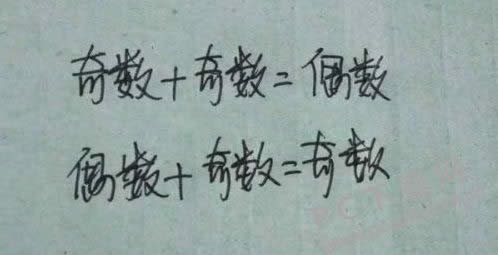 奇数+奇数=偶数
偶数+奇数=奇数